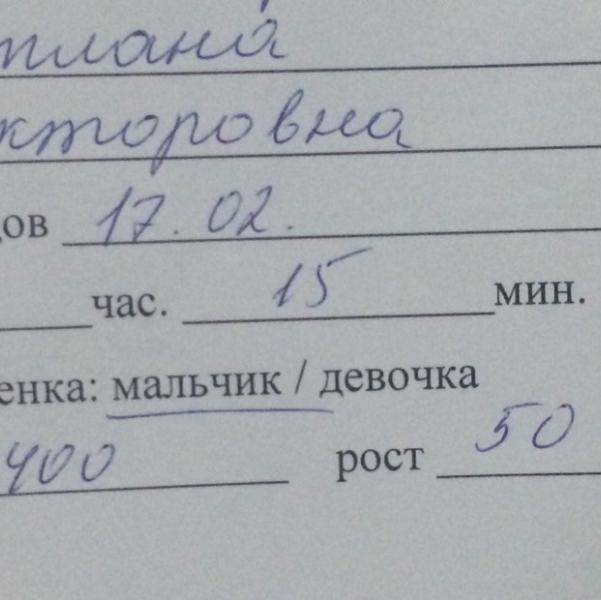 тлана
кторовна
дов 17.02.
час. 15 мин.
енка: мальчик / девочка
400 рост 50